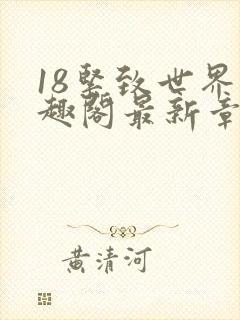 18紧致世界
趣阁最新章
黄清河